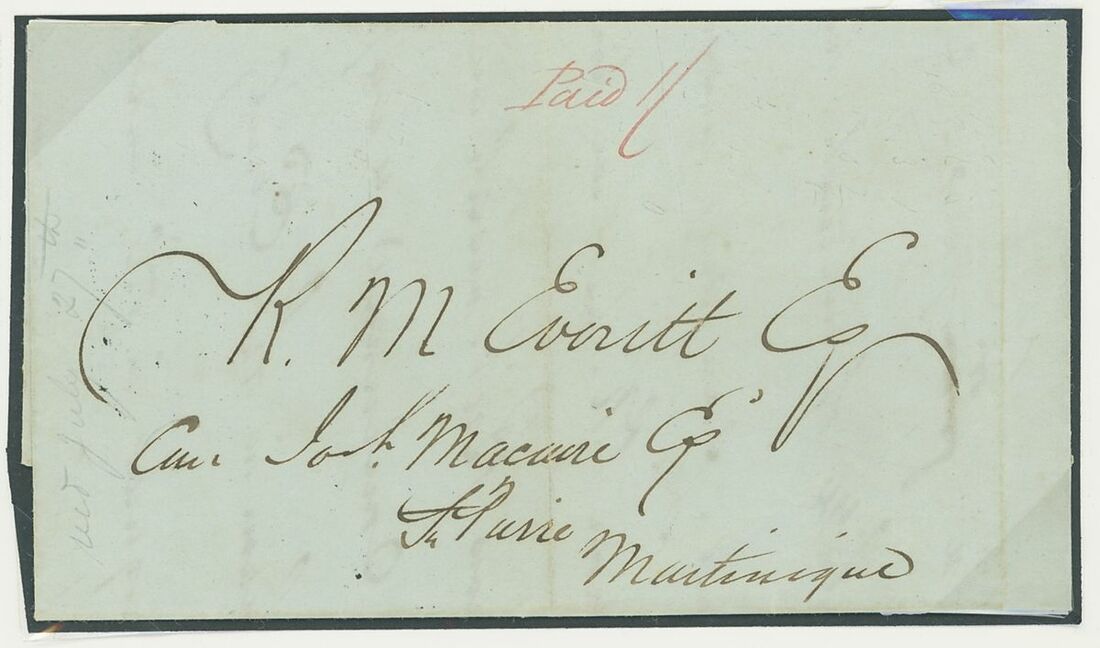 Paid 1/
K. M Everitt Esq
Care Josh. Macaire Esq
St Pierre
Martinique
recd July 27th